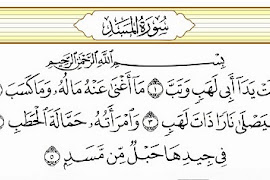 سُورَةُ المَسَدِ
بِسْمِ اللَّهِ الرَّحْمَٰنِ الرَّحِيمِ
تْ يَدَا أَبِي لَهَبٍ وَتَبَّ ١ مَا أَغْنَىٰ عَنْهُ مَالُهُۥ وَمَا كَسَبَ
يَصْلَىٰ نَارًا ذَاتَ لَهَبٍ ٣ وَامْرَأَتُهُۥ حَمَّالَةَ الْحَطَبِ
فِي جِيدِهَا حَبْلٌ مِّن مَّسَدٍ ٥